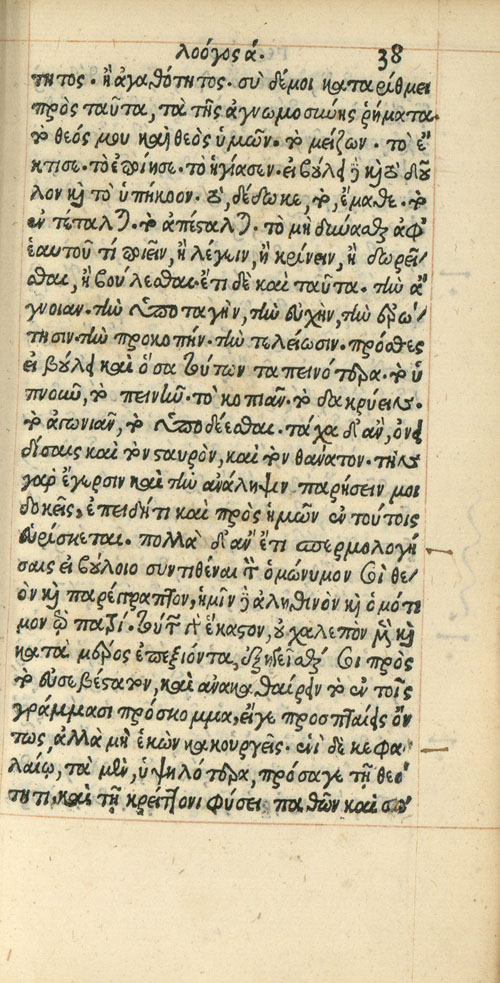 λοόγος ά. 38
τητος. ἢ ἀγαθότητος. σὺ δέ μοι καταρίθμει
πρὸς ταῦτα, τὰ τῆς ἀγνωμοσύνης ῥήματα.
τὸ θεός μου καὶ θεὸς ὑμῶν. τὸ μείζων. τὸ ἔ
κτισε. τὸ ἐποίησε. τὸ ἡγίασεν. εἰ βούλει δὲ καὶ τὸ δοῦ
λον καὶ τὸ ὑπήκοον. τὸ, δέδωκε, τὸ, ἔμαθε. τὸ
ἐντέταλται. τὸ ἀπέσταλται. τὸ μὴ δύνασθαι ἀφ'
ἑαυτοῦ τί ποιεῖν, ἢ λέγειν, ἢ κρίνειν, ἢ δωρεῖ
σθαι, ἢ βούλεσθαι. ἔτι δὲ καὶ ταῦτα. τὴν ἄ
γνοιαν. τὴν ὑποταγὴν, τὴν εὐχὴν, τὴν ἐρώ
τησιν. τὴν προκοπήν. τὴν τελείωσιν. πρόσθες
εἰ βούλει καὶ ὅσα τούτων ταπεινότερα. τὸ ὑ
πνοῦν, τὸ πεινῆν. τὸ κοπιᾶν. τὸ δακρύειν.
τὸ ἀγωνιᾶν, τὸ ὑποδύεσθαι. τάχα δ' ἂν, ὀνει
δίσαις καὶ τὸν σταυρὸν, καὶ τὸν θάνατον. τὴν
γὰρ ἔγερσιν καὶ τὴν ἀνάληψιν παρήσειν μοι
δοκεῖς, ἐπειδή τι καὶ πρὸς ἡμῶν ἐν τούτοις
εὑρίσκεται. πολλὰ δ' ἂν ἔτι σπερμολογή
σαις εἰ βούλοιο συντιθέναι τὸν ὁμώνυμον σοι θε
ὸν καὶ παρέγγραπτον, ἡμῖν δὲ ἀληθινὸν καὶ ὁμότι
μον τῷ πατρί. τούτων γὰρ ἕκαστον, οὐ χαλεπὸν μὲν καὶ
κατὰ μέρος ἐπεξιόντα, ἐξηγεῖσθαί σοι πρὸς
τὸ εὐσεβέστατον, καὶ ἀνακαθαίρειν τὸ ἐν τοῖς
γράμμασι πρόσκομμα, εἴγε προσπταίεις ὄν
τως, ἀλλὰ μὴ ἑκὼν κακουργεῖς. ἑνὶ δὲ κεφα
λαίῳ, τὰ μὲν, ὑψηλότερα, πρόσαγε τῇ θεό
τητι, καὶ τῇ κρείττονι φύσει παθῶν καὶ σώ